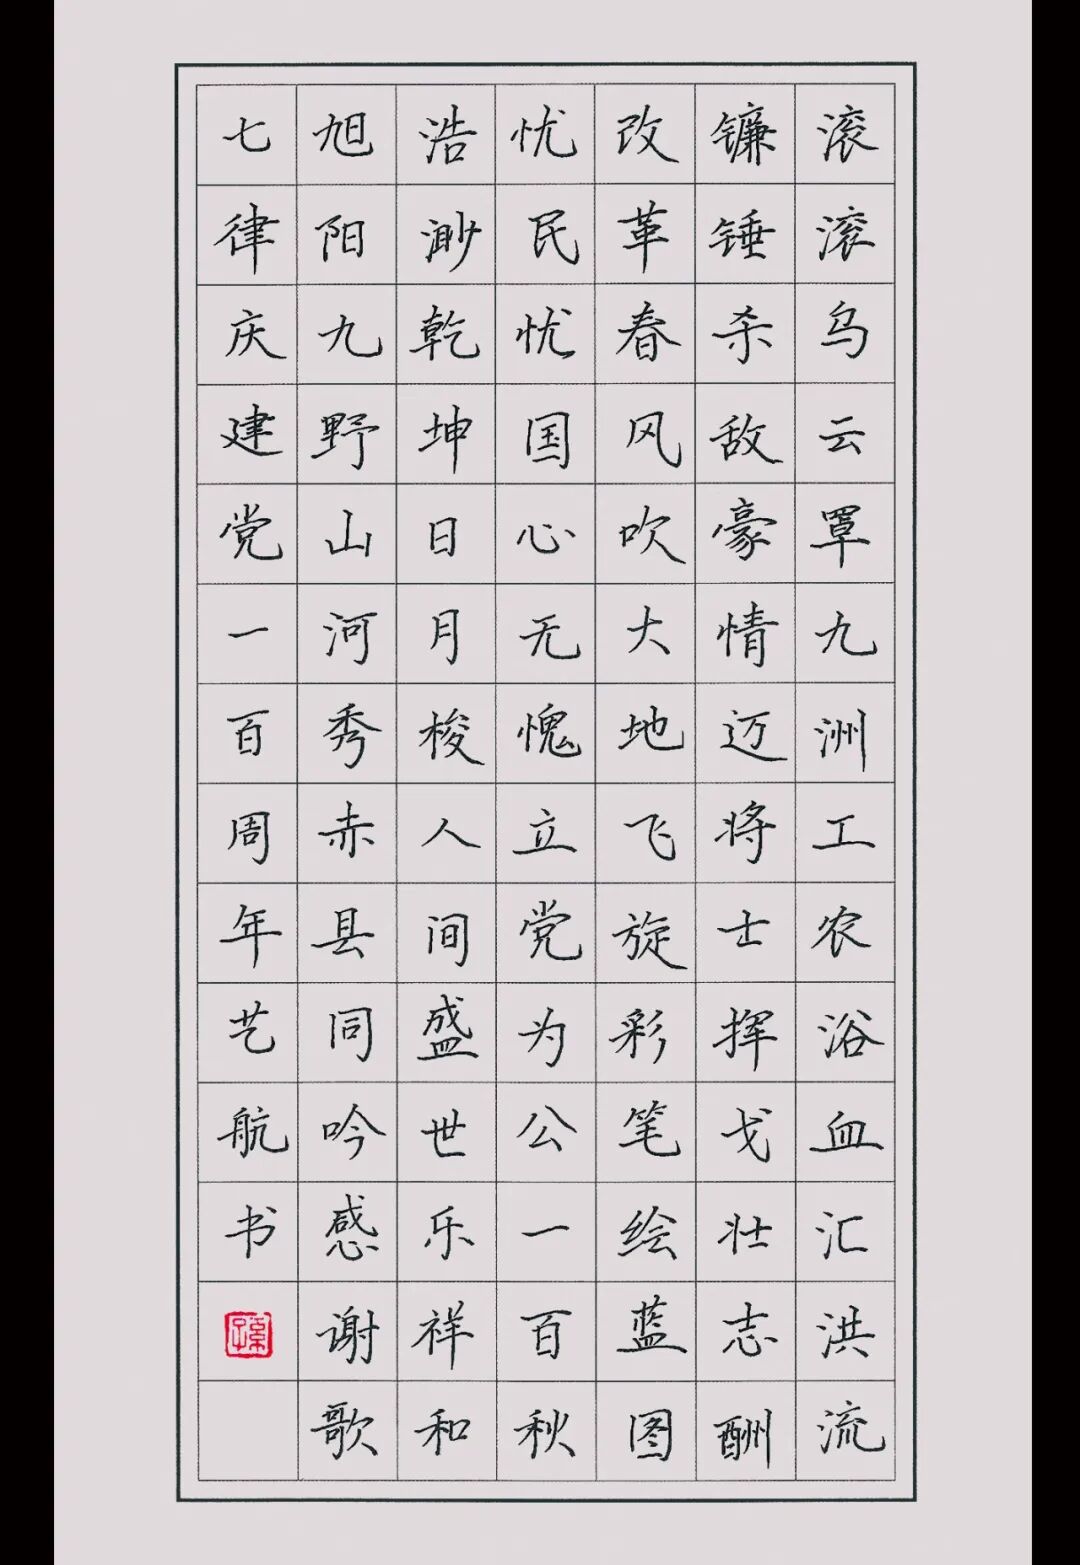 滚滚乌云罩九洲工农浴血汇洪流
镰锤杀敌豪情迈将士挥戈壮志酬
改革春风吹大地飞旋彩笔绘蓝图
忧民忧国心无愧立党为公一百秋
浩渺乾坤日月梭人间盛世乐祥和
旭阳九野山河秀赤县同吟感谢歌
七律庆建党一百周年艺航书
孙